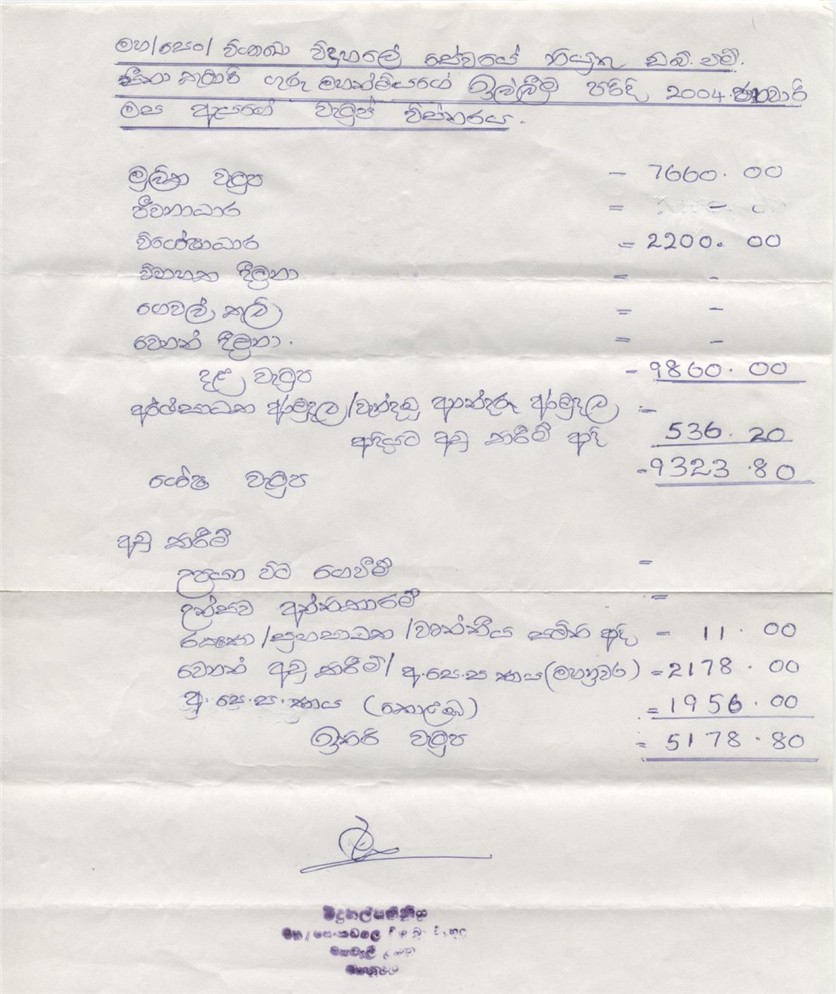 මහ/සෙං/ විදුහලේ සේවයේ නියුතු ඩබ්.එම්.
කුමාරි ගුරු මහත්මියගේ ඉල්ලීම පරිදි 2004.ජනවාරි
මස ඇයගේ වැටුප් විස්තරය.
මූලික වැටුප - 7660.00
ජීවනාධාර = -
විශේෂාධාර = 2200.00
විභාග දීමනා = -
ගෙවල් කුලි = -
වෙනත් දීමනා. = -
දළ වැටුප - 9860.00
අර්ථසාධක අරමුදල/වැන්දඹු අනත්දරු අරමුදල =
අදියට අඩු කිරීම් ආදි 536.20
ශේෂ වැටුප -9323.80
අඩු කිරීම්
ණය වට ගෙවීම් =
උත්සව අත්තිකාරම් =
රක්ෂණ/සුභසාධක/වෘත්තීය සමිති ආදි - 11.00
වෙනත් අඩු කිරීම්/ අ.සෙ.ස ණය(මහනුවර) =2178.00
අ.සෙ.ස.ණය (කොළඹ) =1956.00
ඉතිරි වැටුප = 5178.80
විදුහල්පතිනිය